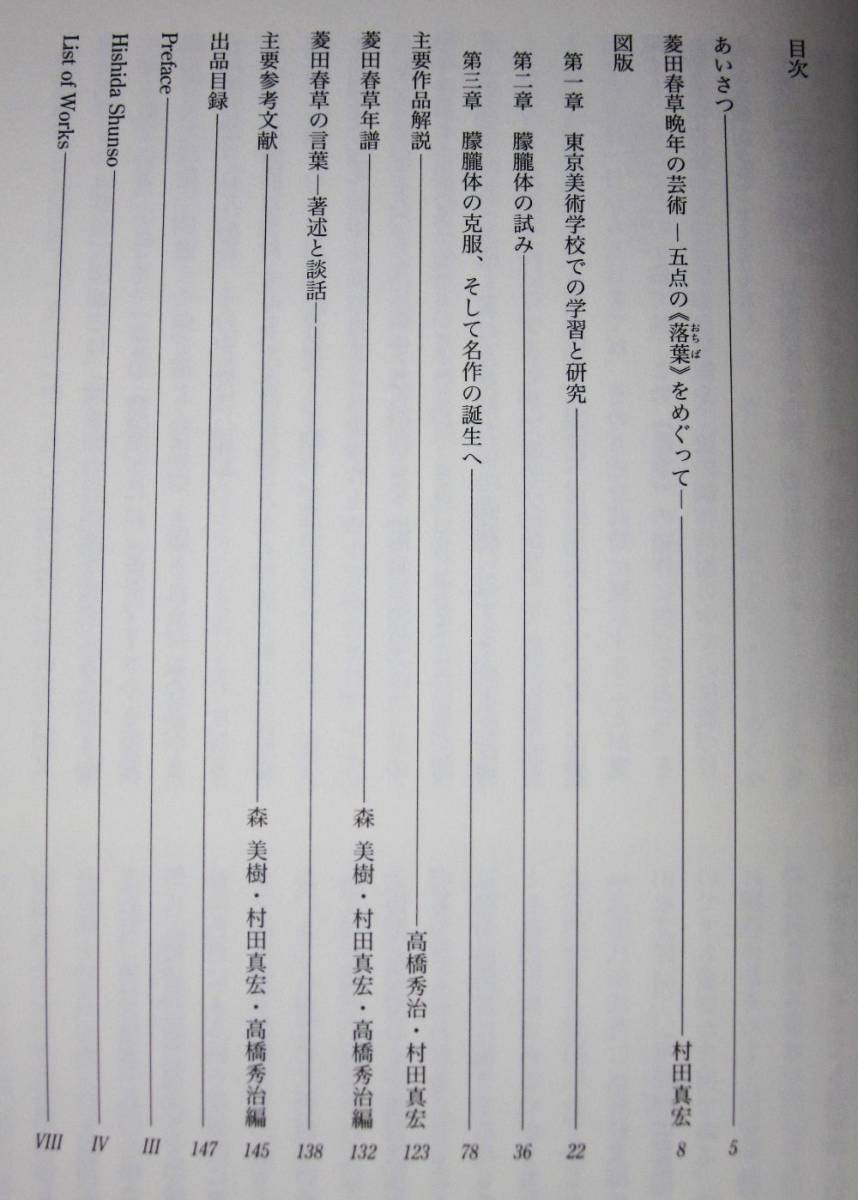 目次
あいさつ――5
菱田春草晩年の芸術 ―五点の《落葉》をめぐって― ――村田真宏 8
おちば
図版
第一章 東京美術学校での学習と研究――22
第二章 朦朧体の試み――36
第三章 朦朧体の克服、そして名作の誕生へ――78
主要作品解説――高橋秀治・村田真宏 123
菱田春草年譜――森 美樹・村田真宏・高橋秀治編 132
菱田春草の言葉―著述と談話― ――138
主要参考文献――森 美樹・村田真宏・高橋秀治編 145
出品目録――147
Preface――III
Hishida Shunso――IV
List of Works――VIII